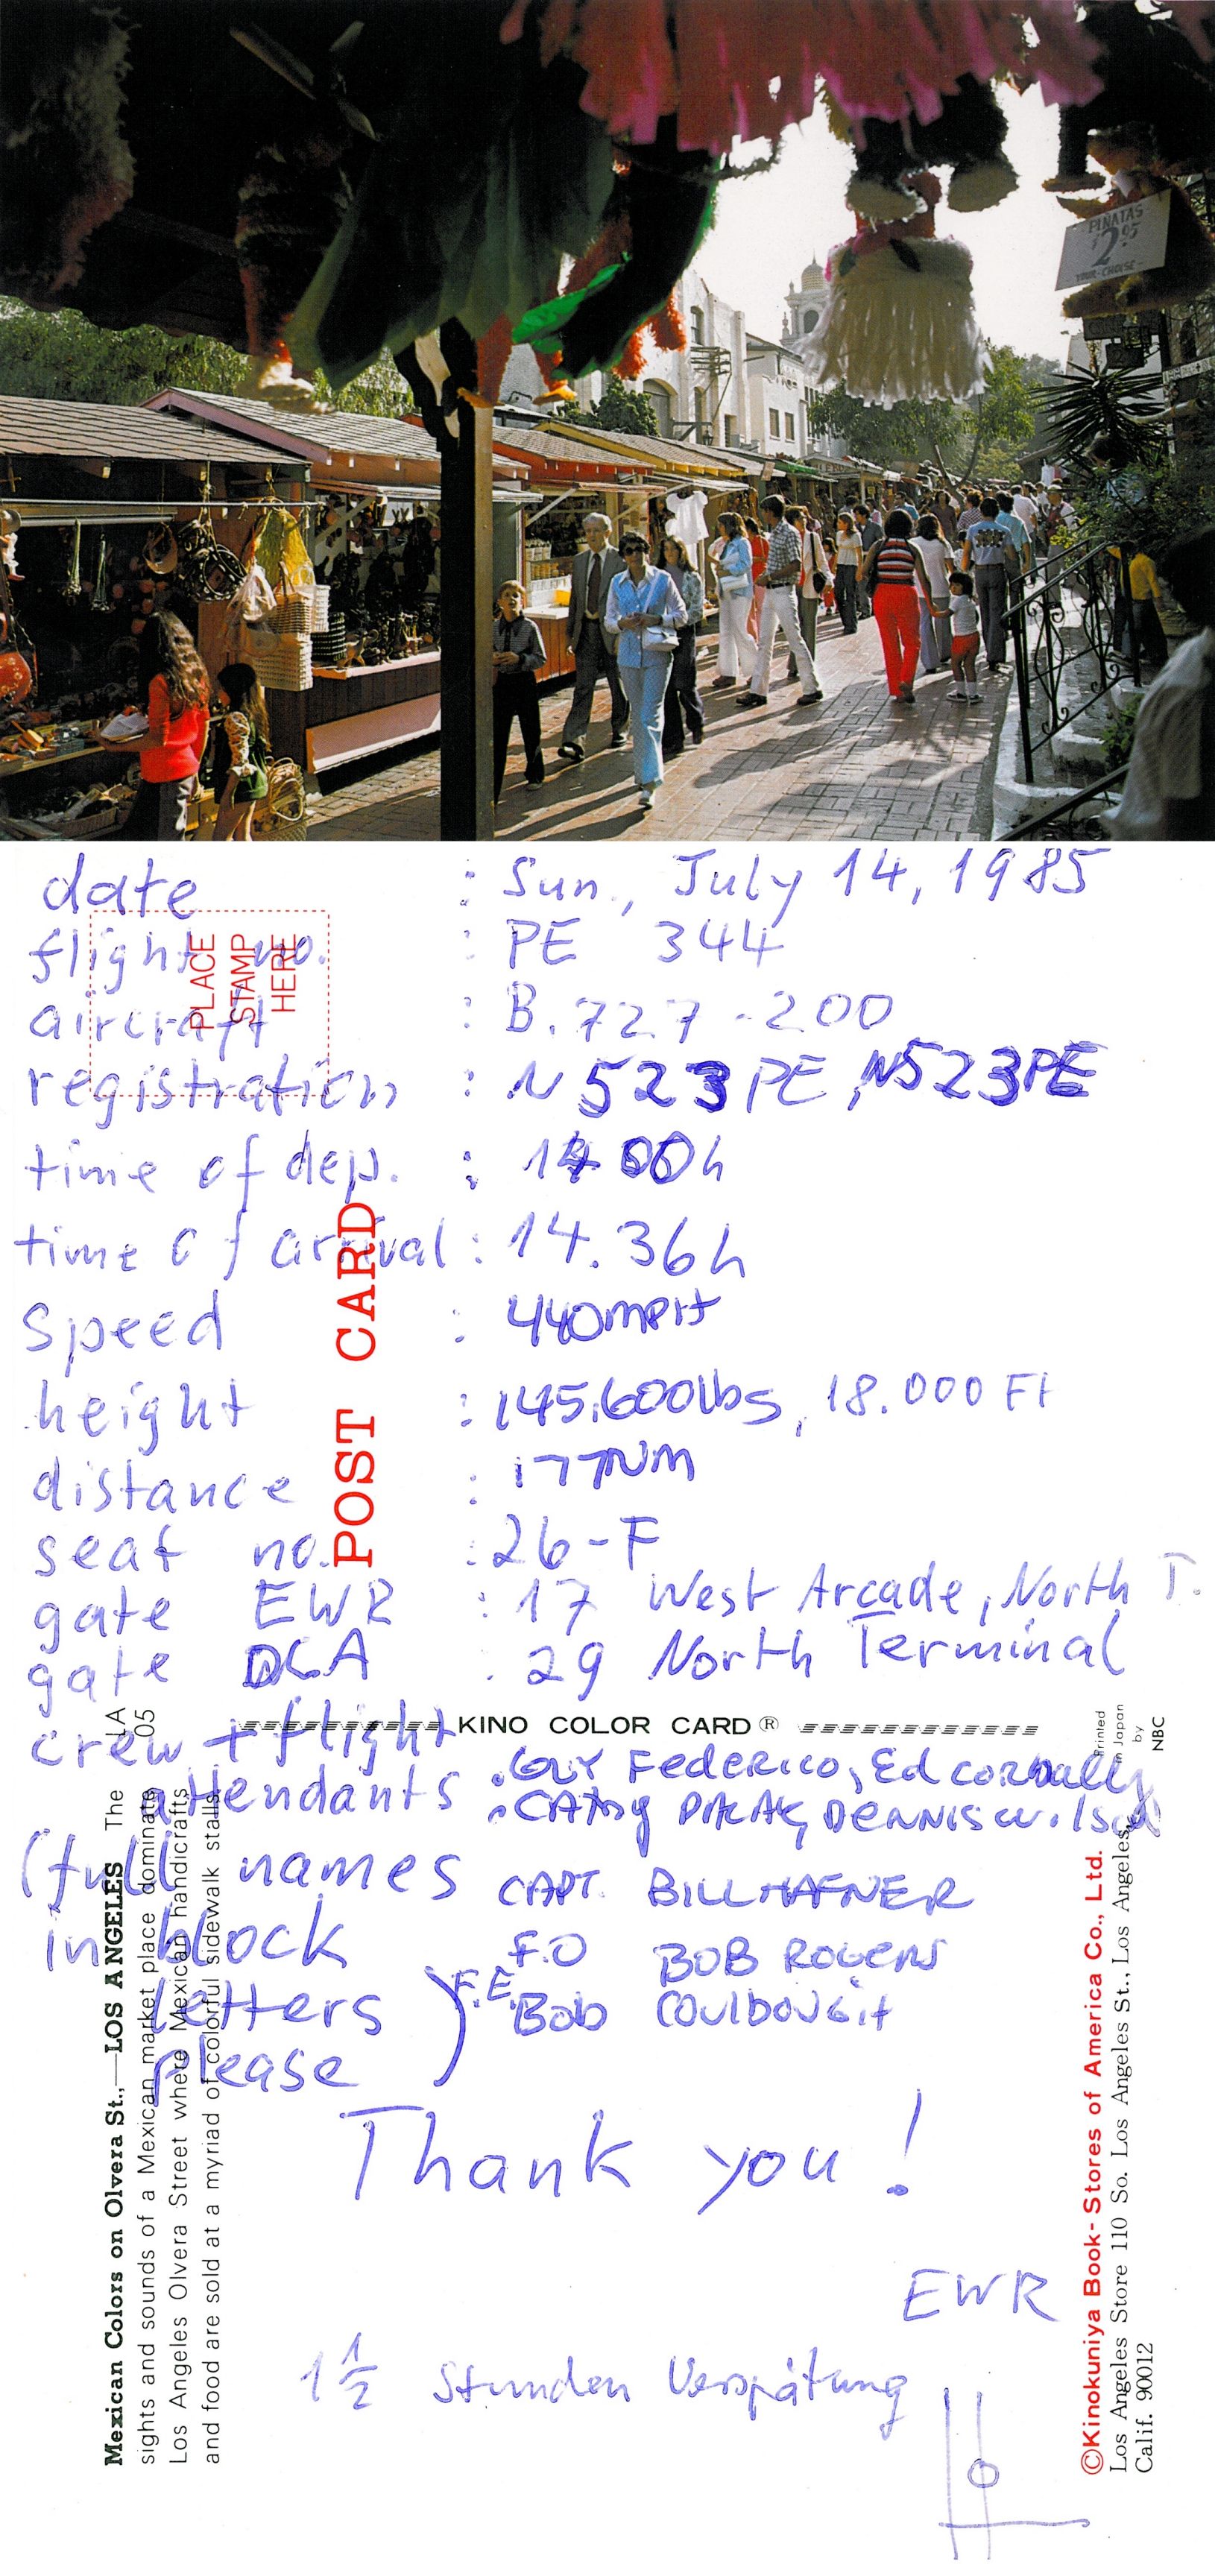 PIÑATAS
$2.95
YOUR-CHOISE-
date : Sun., July 14, 1985
flight no. : PE 344
aircraft : B.727-200
registration : N523PE, N523PE
time of dep. : 14 00h
time of arrival : 14.36h
speed : 440mpH
height : 145,600lbs, 18.000 Ft
distance : 177NM
seat no. : 26-F
gate EWR : 17 West Arcade, North T.
gate DCA : 29 North Terminal
crew + flight
attendants : GUY Federico, Ed
: CATHY DENNIS Wilson
(full names CAPT. BILL HAFNER
in block F.O BOB ROGERS
letters ) F.E. Bob
please
Thank you!
EWR
1 1/2 Stunden Verspätung
PLACE
STAMP
HERE
POST CARD
KINO COLOR CARD ®
Printed
in Japan
by
NBC
LA
05
Mexican Colors on Olvera St.,—LOS ANGELES The
sights and sounds of a Mexican market place dominate
Los Angeles Olvera Street where Mexican handicrafts
and food are sold at a myriad of colorful sidewalk stalls.
©Kinokuniya Book-Stores of America Co., Ltd.
Los Angeles Store 110 So. Los Angeles St., Los Angeles,
Calif. 90012